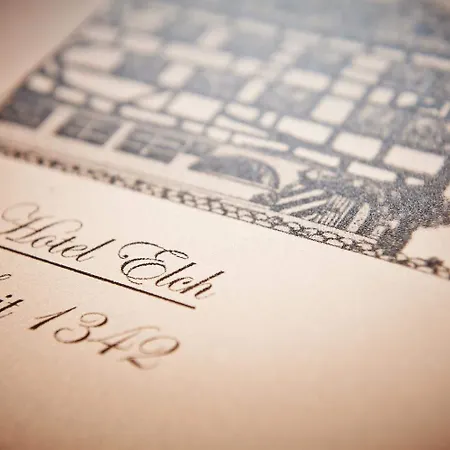 Hotel Elch
it 1342